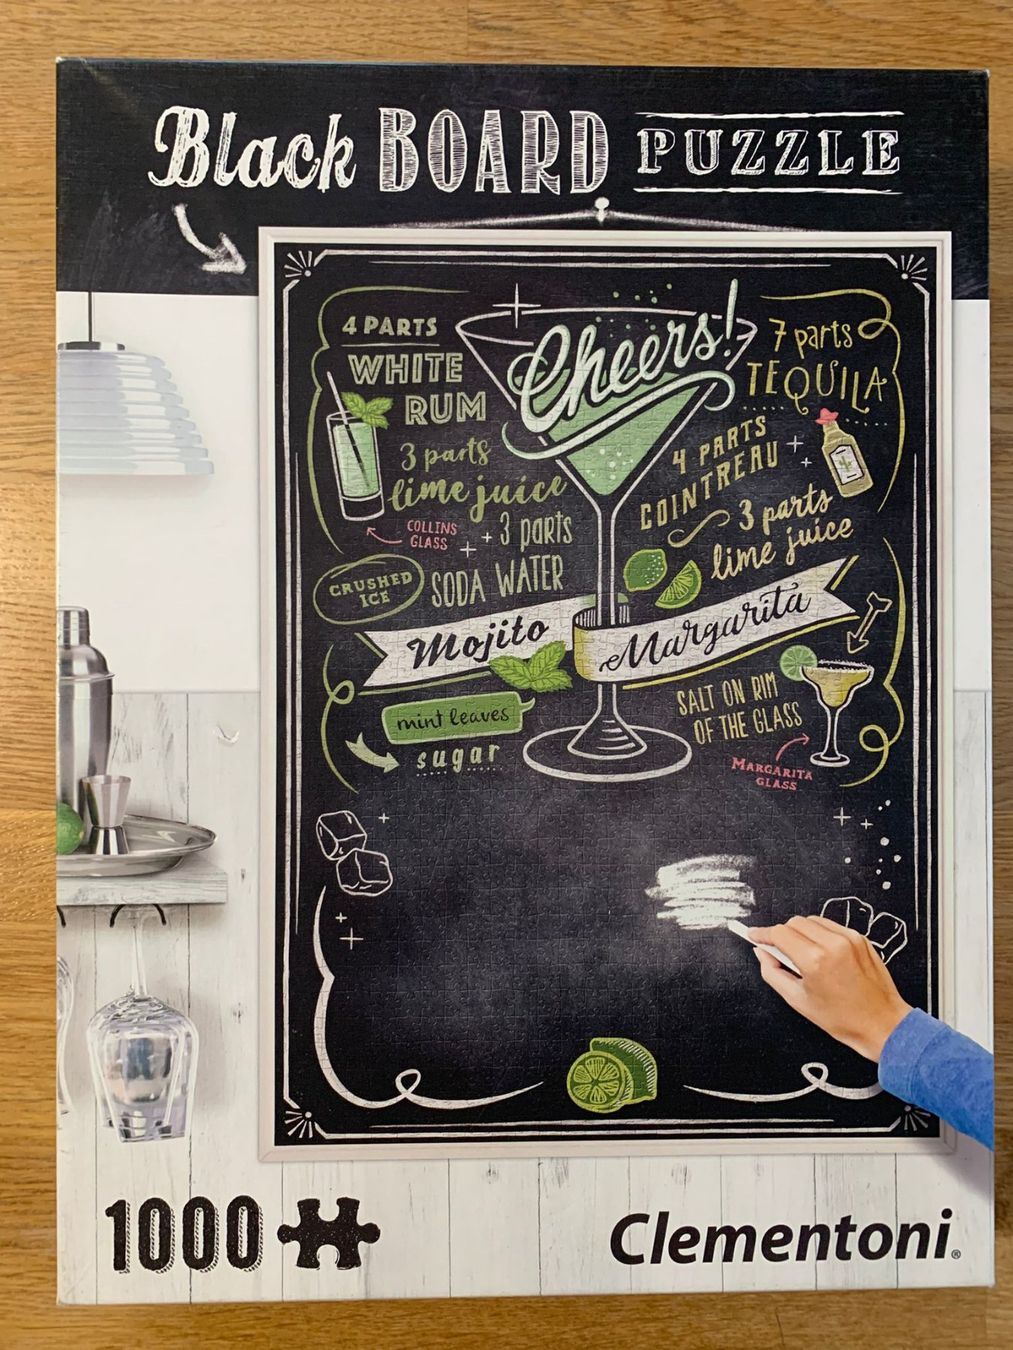 Black BOARD PUZZLE
Cheers!
4 PARTS
WHITE
RUM
3 parts
lime juice
COLLINS
GLASS
+ 3 parts
CRUSHED
ICE
SODA WATER
Mojito
mint leaves
sugar
7 parts
TEQUILA
4 PARTS
COINTREAU
3 parts
lime juice
Margarita
SALT ON RIM
OF THE GLASS
MARGARITA
GLASS
1000
Clementoni®